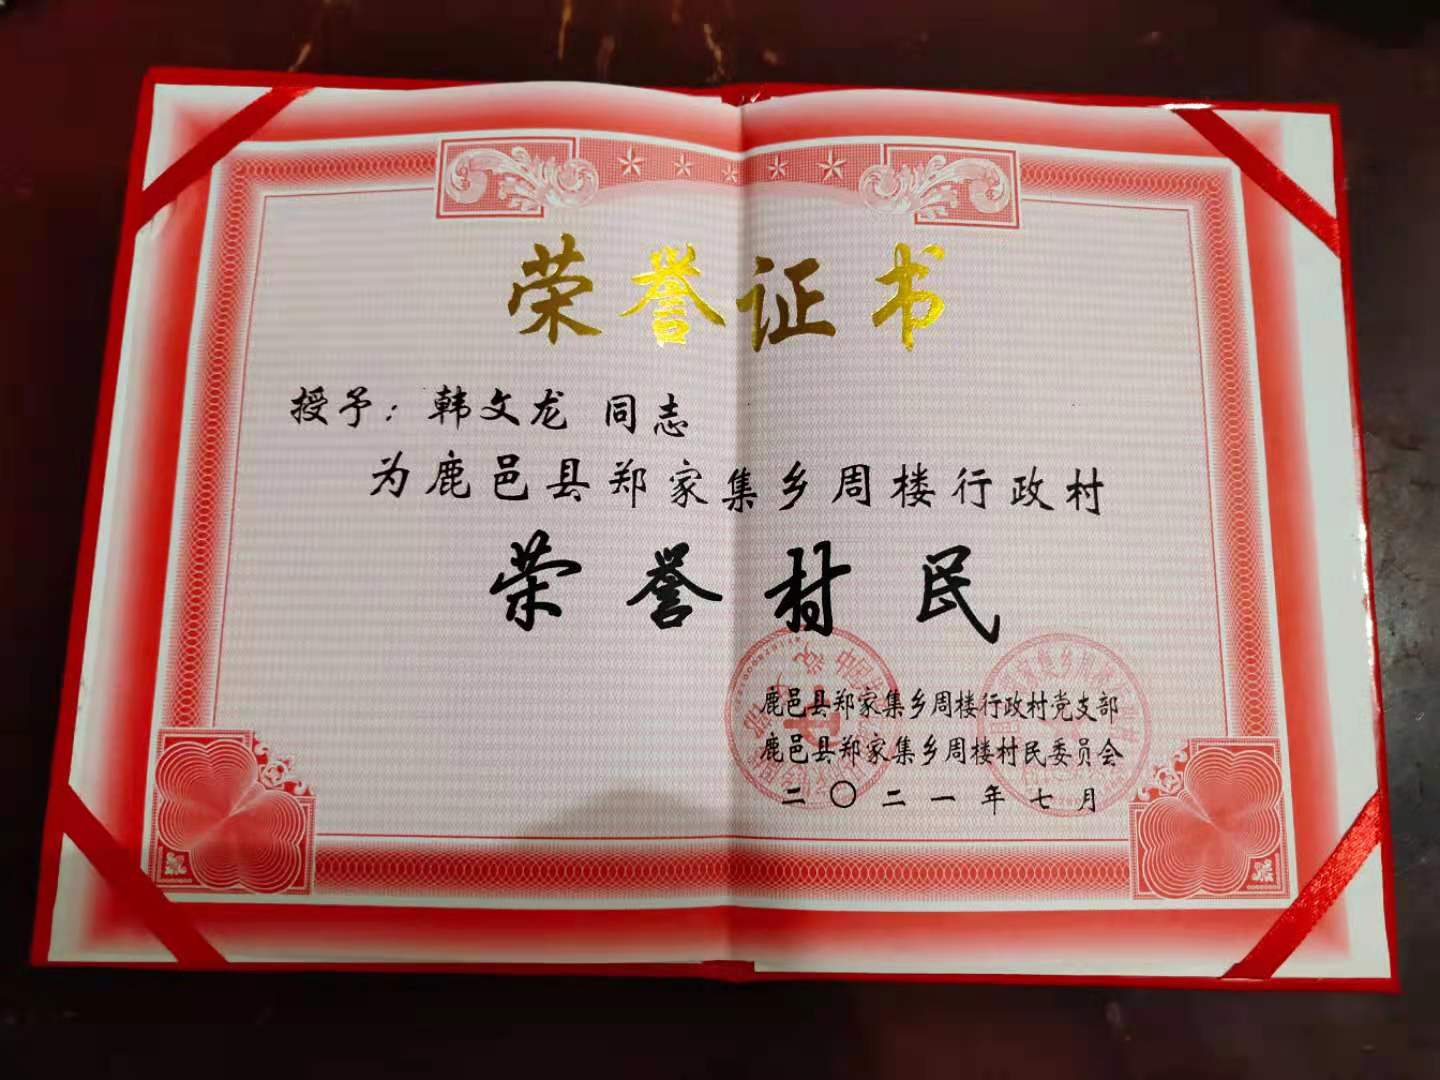 荣誉证书
授予：韩文龙 同志
为鹿邑县郑家集乡周楼行政村
荣誉村民
鹿邑县郑家集乡周楼行政村党支部
鹿邑县郑家集乡周楼村民委员会
二〇二一年七月